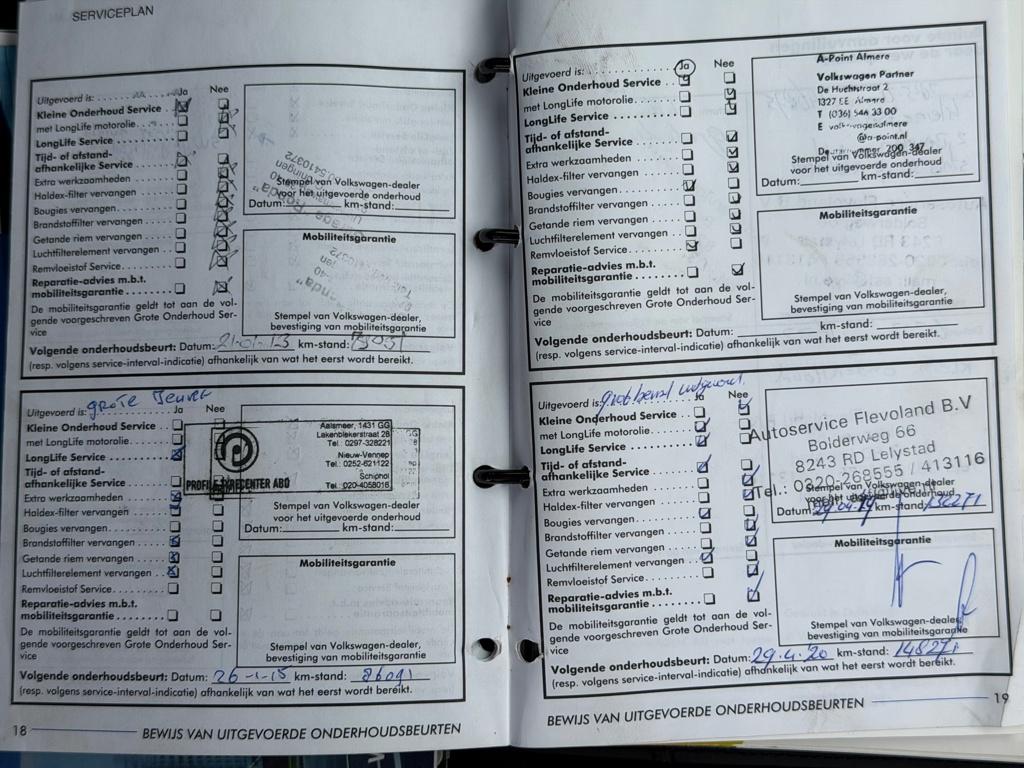 SERVICEPLAN
Uitgevoerd is: Ja Nee
Kleine Onderhoud Service
met LongLife motorolie
LongLife Service
Tijd- of afstand-
afhankelijke Service
Extra werkzaamheden
Haldex-filter vervangen
Bougies vervangen
Brandstoffilter vervangen
Getande riem vervangen
Luchtfilterelement vervangen
Remvloeistof Service
Reparatie-advies m.b.t.
mobiliteitsgarantie
De mobiliteitsgarantie geldt tot aan de vol-
gende voorgeschreven Grote Onderhoud Ser-
vice
Stempel van Volkswagen-dealer
voor het uitgevoerde onderhoud
Datum: km-stand:
Mobiliteitsgarantie
Stempel van Volkswagen-dealer,
bevestiging van mobiliteitsgarantie
Volgende onderhoudsbeurt: Datum: km-stand:
(resp. volgens service-interval-indicatie) afhankelijk van wat het eerst wordt bereikt.
grote
Uitgevoerd is: Ja Nee
Kleine Onderhoud Service
met LongLife motorolie
LongLife Service
Tijd- of afstand-
afhankelijke Service
Extra werkzaamheden
Haldex-filter vervangen
Bougies vervangen
Brandstoffilter vervangen
Getande riem vervangen
Luchtfilterelement vervangen
Remvloeistof Service
Reparatie-advies m.b.t.
mobiliteitsgarantie
De mobiliteitsgarantie geldt tot aan de vol-
gende voorgeschreven Grote Onderhoud Ser-
vice
Aalsmeer, 1431 GG
Lakenblekerstraat 28
Tel.: 0297-328221
Nieuw-Vennep
Tel.: 0252-621122
Schiphol
Tel.: 020-4058018
PROFILE TYRECENTER ABO
Stempel van Volkswagen-dealer
voor het uitgevoerde onderhoud
Datum: km-stand:
Mobiliteitsgarantie
Stempel van Volkswagen-dealer,
bevestiging van mobiliteitsgarantie
Volgende onderhoudsbeurt: Datum: 26-1-15 km-stand: 86091
(resp. volgens service-interval-indicatie) afhankelijk van wat het eerst wordt bereikt.
18 BEWIJS VAN UITGEVOERDE ONDERHOUDSBEURTEN
Uitgevoerd is: Ja Nee
Kleine Onderhoud Service
met LongLife motorolie
LongLife Service
Tijd- of afstand-
afhankelijke Service
Extra werkzaamheden
Haldex-filter vervangen
Bougies vervangen
Brandstoffilter vervangen
Getande riem vervangen
Luchtfilterelement vervangen
Remvloeistof Service
Reparatie-advies m.b.t.
mobiliteitsgarantie
De mobiliteitsgarantie geldt tot aan de vol-
gende voorgeschreven Grote Onderhoud Ser-
vice
A-Point Almere
Volkswagen Partner
De Huchtstraat 2
1327 EE Almere
T (036) 544 33 00
@a-point.nl
Stempel van Volkswagen-dealer
voor het uitgevoerde onderhoud
Datum: km-stand:
Mobiliteitsgarantie
Stempel van Volkswagen-dealer,
bevestiging van mobiliteitsgarantie
Volgende onderhoudsbeurt: Datum: km-stand:
(resp. volgens service-interval-indicatie) afhankelijk van wat het eerst wordt bereikt.
Uitgevoerd is: Ja Nee
Kleine Onderhoud Service
met LongLife motorolie
LongLife Service
Tijd- of afstand-
afhankelijke Service
Extra werkzaamheden
Haldex-filter vervangen
Bougies vervangen
Brandstoffilter vervangen
Getande riem vervangen
Luchtfilterelement vervangen
Remvloeistof Service
Reparatie-advies m.b.t.
mobiliteitsgarantie
De mobiliteitsgarantie geldt tot aan de vol-
gende voorgeschreven Grote Onderhoud Ser-
vice
Autoservice Flevoland B.V
Bolderweg 66
8243 RD Lelystad
Tel.: 0320-268555 / 413116
Stempel van Volkswagen-dealer
voor het uitgevoerde onderhoud
Datum: 29.04.19 km-stand: 132271
Mobiliteitsgarantie
Stempel van Volkswagen-dealer,
bevestiging van mobiliteitsgarantie
Volgende onderhoudsbeurt: Datum: 29.4.20 km-stand: 148271
(resp. volgens service-interval-indicatie) afhankelijk van wat het eerst wordt bereikt.
BEWIJS VAN UITGEVOERDE ONDERHOUDSBEURTEN 19